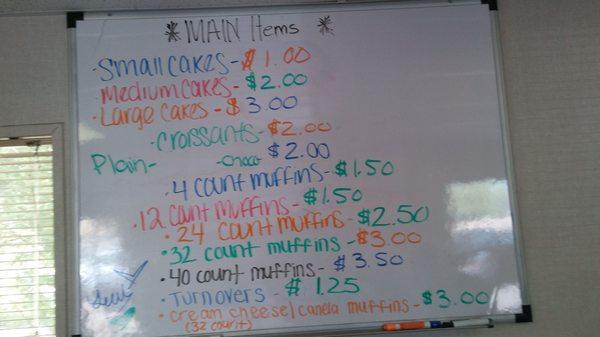 *MAIN Items *
·Small cakes - $1.00
·Medium cakes - $2.00
·Large cakes - $3.00
·Croissants - $2.00
Plain- -choco $2.00
·4 count muffins - $1.50
·12 count muffins - $1.50
·24 count muffins - $2.50
·32 count muffins - $3.00
·40 count muffins - $3.50
·Turnovers - $1.25
·cream cheese/canela muffins - $3.00